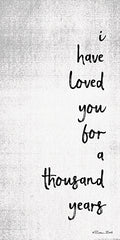 i
have
loved
you
for
a
thousand
years